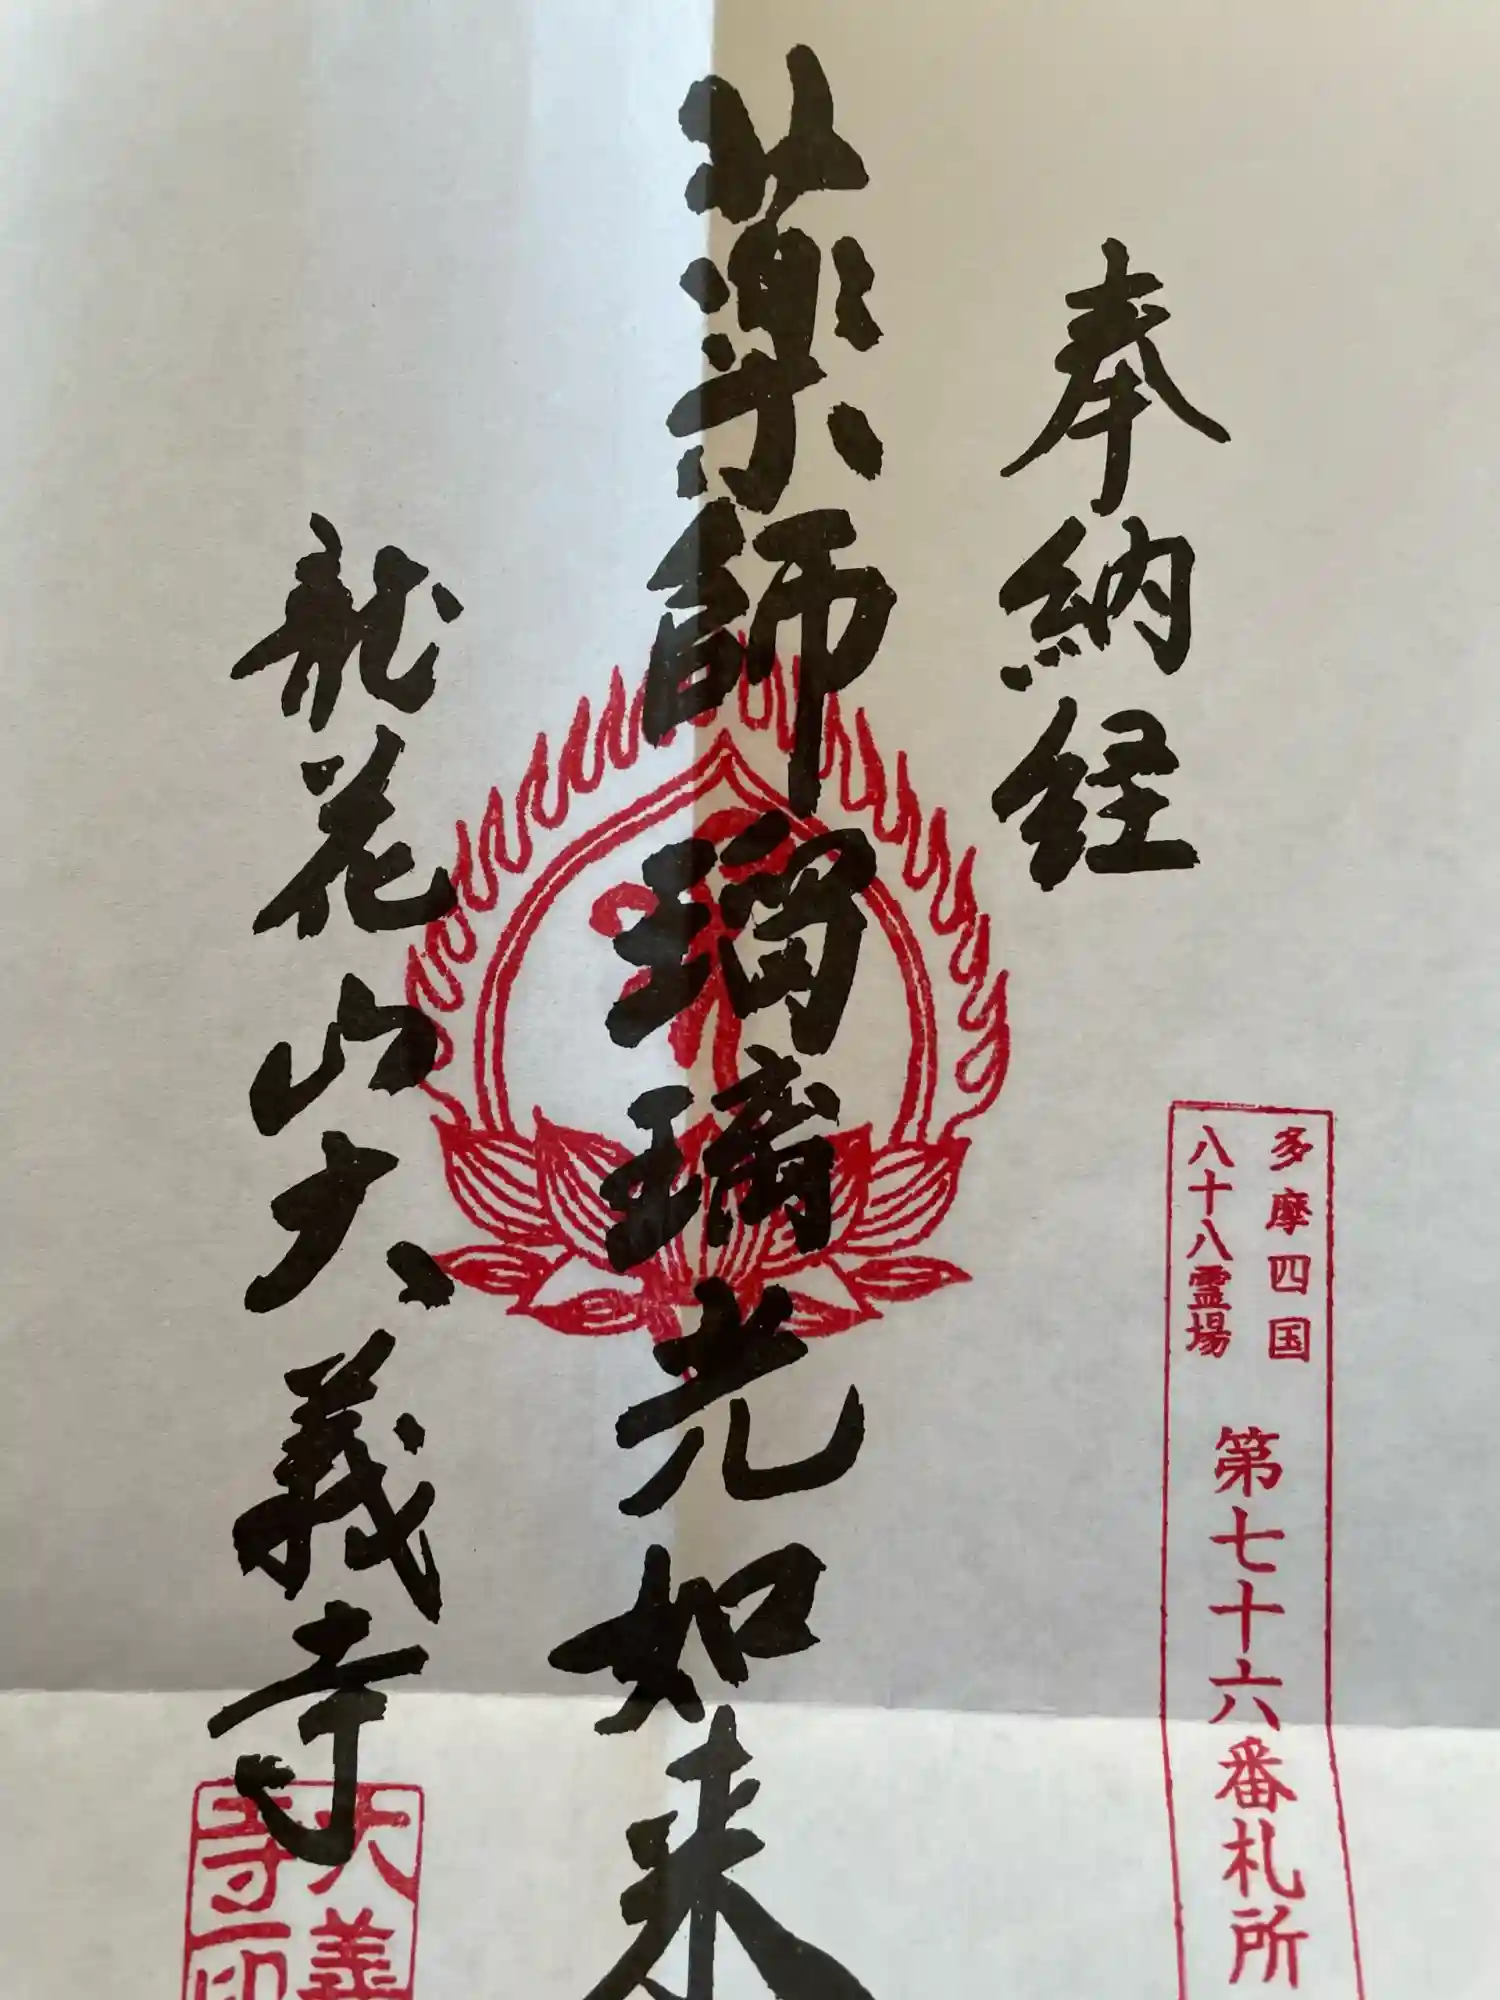 奉納経
多摩四国
八十八霊場
第七十六番札所
薬師瑠璃光如来
龍花山大義寺
大義
寺印